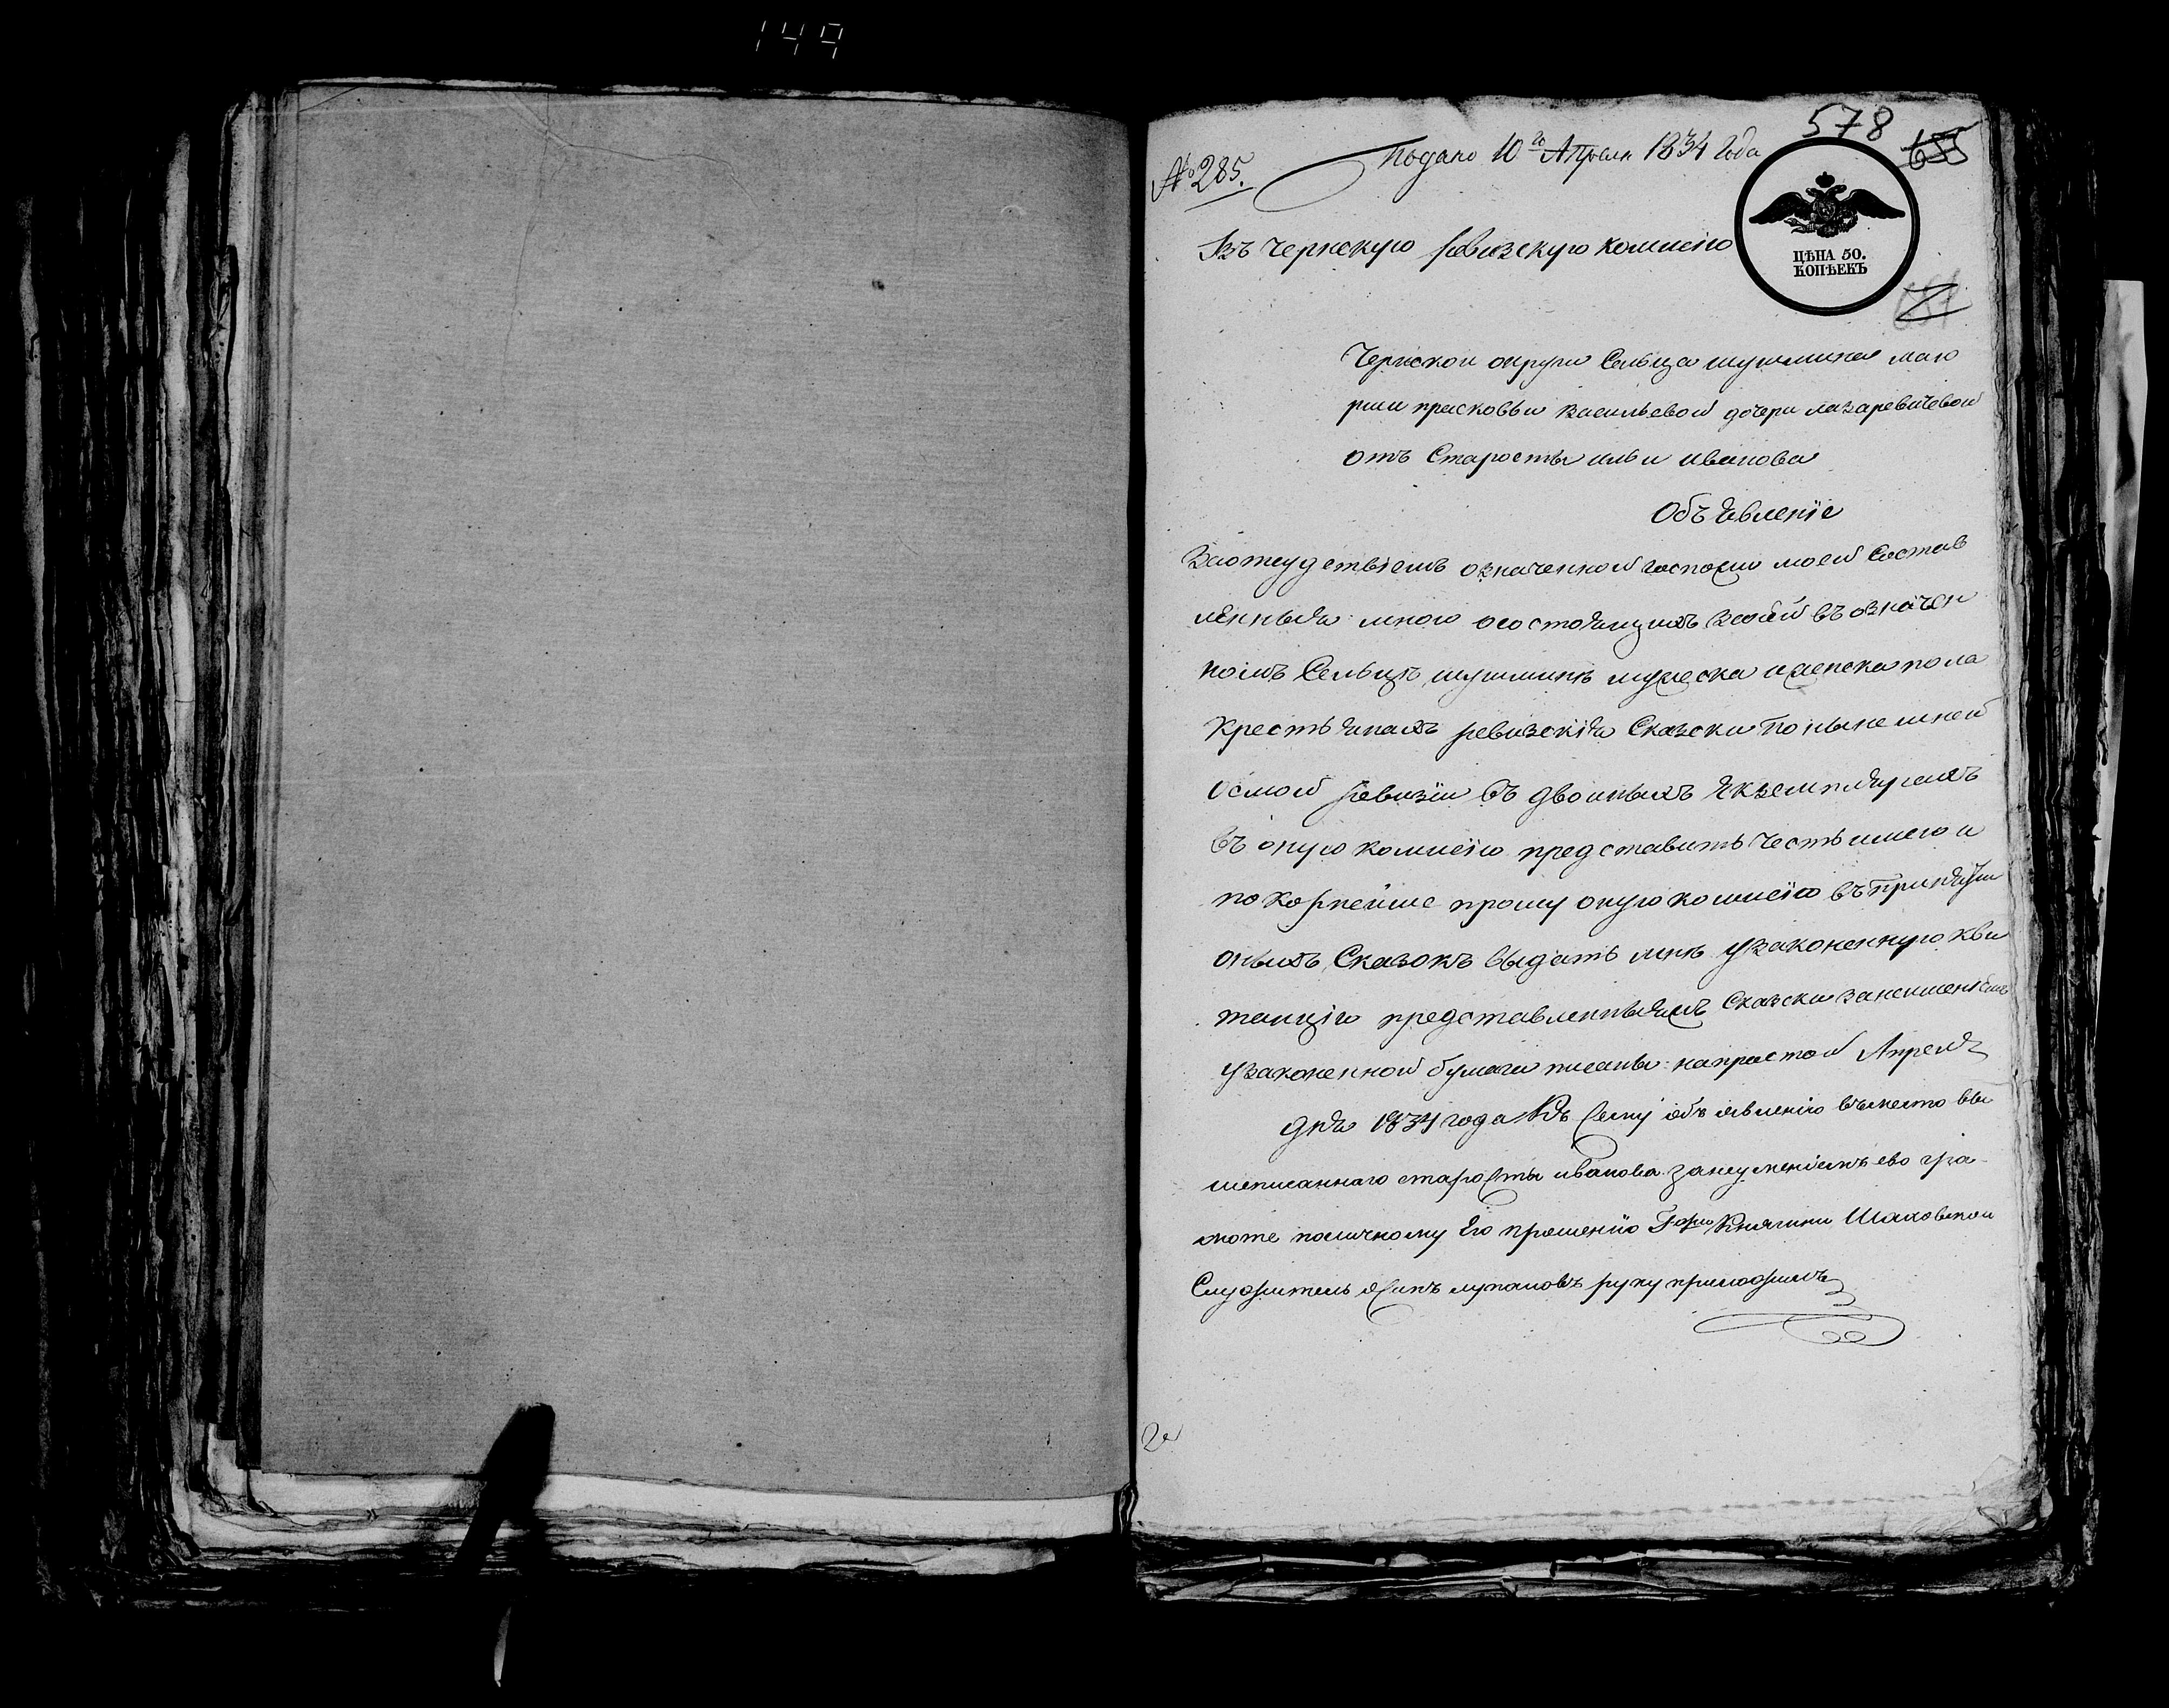 149
578
№ 285.
Подано 10го Апреля 1834 Года
ЦѢНА 50.
КОПѢЕКЪ
Въ чернскую ревизскую комисію
Чернской округи Сельца шушмина маио
рши прасковьи васильевой дочери лазаревичевой
отъ Старосты ильи иванова
Объявленіе
Заотсудствіемъ означенной госпожи моей Состав
ленныя мною осостоящихъ заней въ означен
номъ Сельцѣ шушминѣ мужеска иженска пола
Крестьянахъ ревизскія Сказски по нынешней
осмой ревизіи въ двоиныхъ екземплярахъ
въ оную комисію представить честь имею и
покорнейше прошу оную комисію въ приняти
оныхъ Сказокъ выдать мнѣ узаконенную кви
танцію представленныяжъ Сказски занеимениемъ
узаконенной бумаги писаны напростой Апреля
дня 1834 года Къ Сему объявленію вместо вы
шеписаннаго старосты иванова занеумениемъ ево гра
моте поличному Его прошенію Княгини Шаховской
Служитель лупановъ руку приложилъ